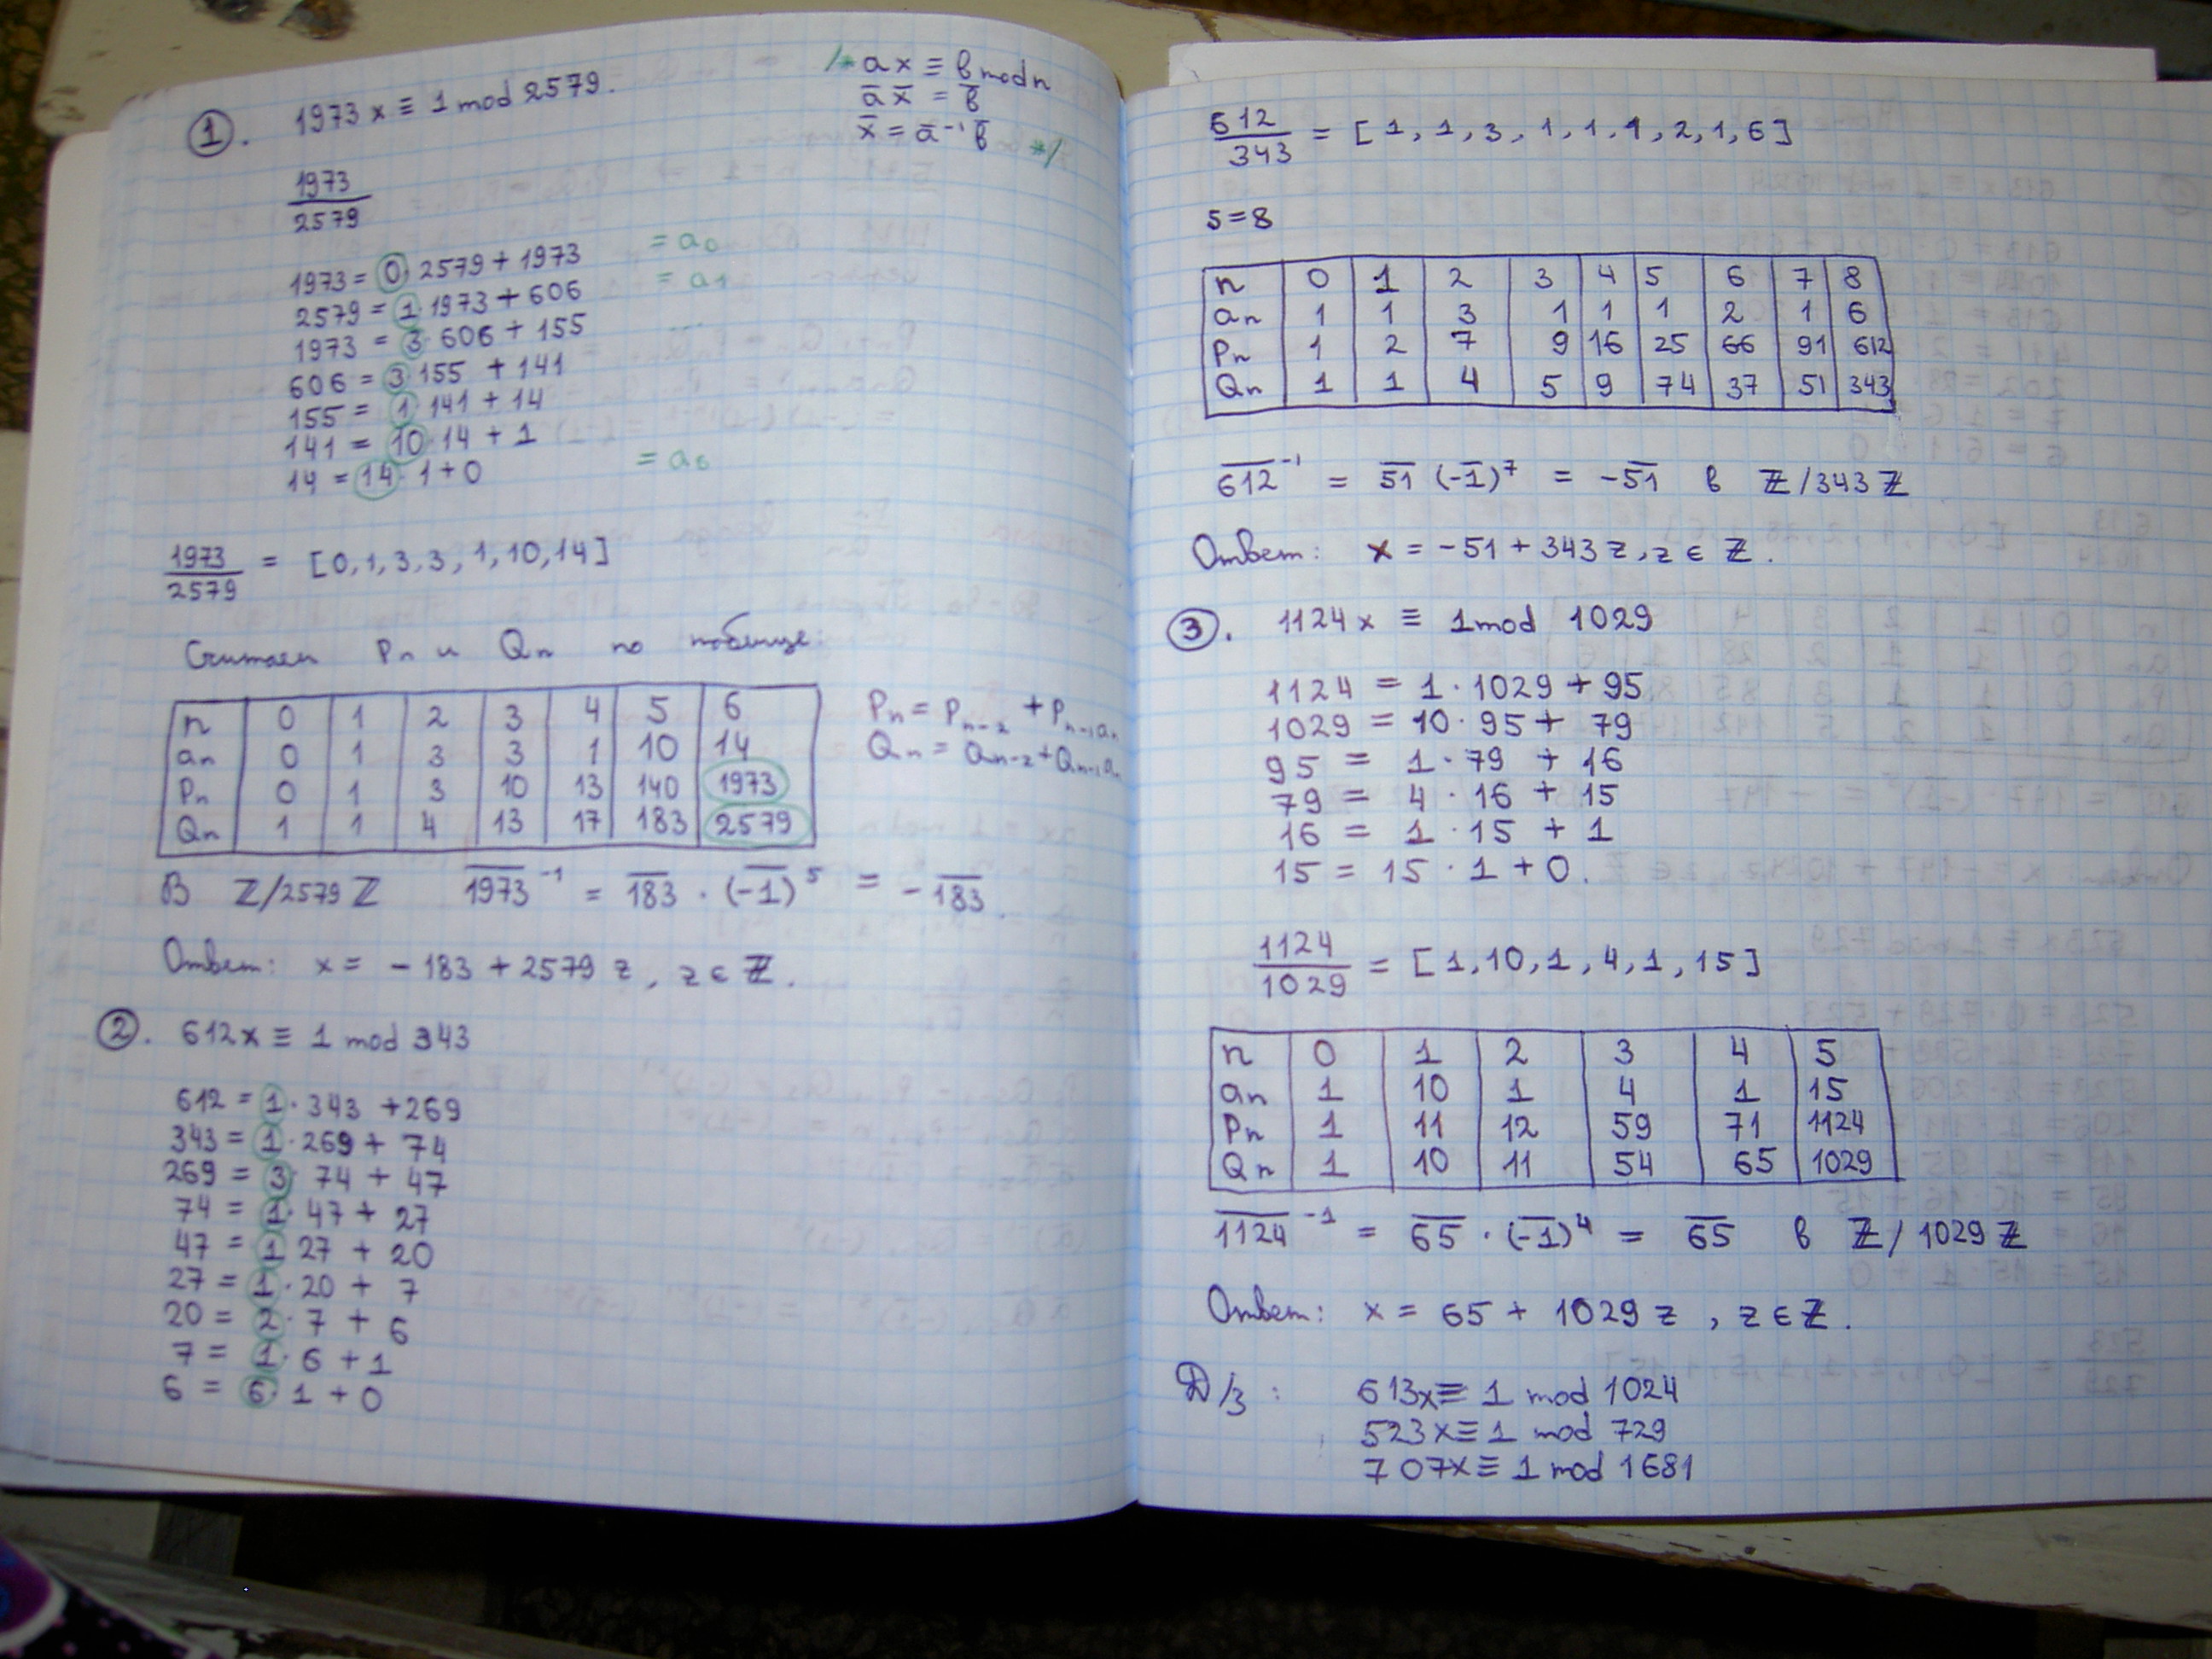 1. 1973 x ≡ 1 mod 2579.
/* ax ≡ b mod n
a̅ x̅ = b̅
x̅ = a̅⁻¹ b̅ */
1973/2579
1973 = 0· 2579 + 1973 = a₀
2579 = 1· 1973 + 606 = a₁
1973 = 3· 606 + 155
606 = 3· 155 + 141
155 = 1· 141 + 14
141 = 10· 14 + 1
14 = 14· 1 + 0 = a₆
1973/2579 = [0,1,3,3,1,10,14]
Считаем Pn и Qn по таблице:
n 0 1 2 3 4 5 6
an 0 1 3 3 1 10 14
Pn 0 1 3 10 13 140 1973
Qn 1 1 4 13 17 183 2579
Pn = Pn-2 + Pn-1 an
Qn = Qn-2 + Qn-1 an
В Z/2579 Z 1973̅⁻¹ = 183̅ · (-1̅)⁵ = - 183̅.
Ответ: x = - 183 + 2579 z, z ∈ Z.
2. 612x ≡ 1 mod 343
612 = 1· 343 + 269
343 = 1· 269 + 74
269 = 3· 74 + 47
74 = 1· 47 + 27
47 = 1 27 + 20
27 = 1· 20 + 7
20 = 2· 7 + 6
7 = 1· 6 + 1
6 = 6· 1 + 0
612/343 = [1, 1, 3, 1, 1, 1, 2, 1, 6]
s=8
n 0 1 2 3 4 5 6 7 8
an 1 1 3 1 1 1 2 1 6
Pn 1 2 7 9 16 25 66 91 612
Qn 1 1 4 5 9 74 37 51 343
612̅⁻¹ = 51̅ (-1̅)⁷ = -51̅ в Z/343 Z
Ответ: x = -51 + 343 z, z ∈ Z.
3. 1124x ≡ 1 mod 1029
1124 = 1 · 1029 + 95
1029 = 10 · 95 + 79
95 = 1 · 79 + 16
79 = 4 · 16 + 15
16 = 1 · 15 + 1
15 = 15 · 1 + 0.
1124/1029 = [1,10,1,4,1,15]
n 0 1 2 3 4 5
an 1 10 1 4 1 15
Pn 1 11 12 59 71 1124
Qn 1 10 11 54 65 1029
1124̅⁻¹ = 65̅ · (-1̅)⁴ = 65̅ в Z/1029 Z
Ответ: x = 65 + 1029 z, z ∈ Z.
Д/з: 613x ≡ 1 mod 1024
523x ≡ 1 mod 729
707x ≡ 1 mod 1681